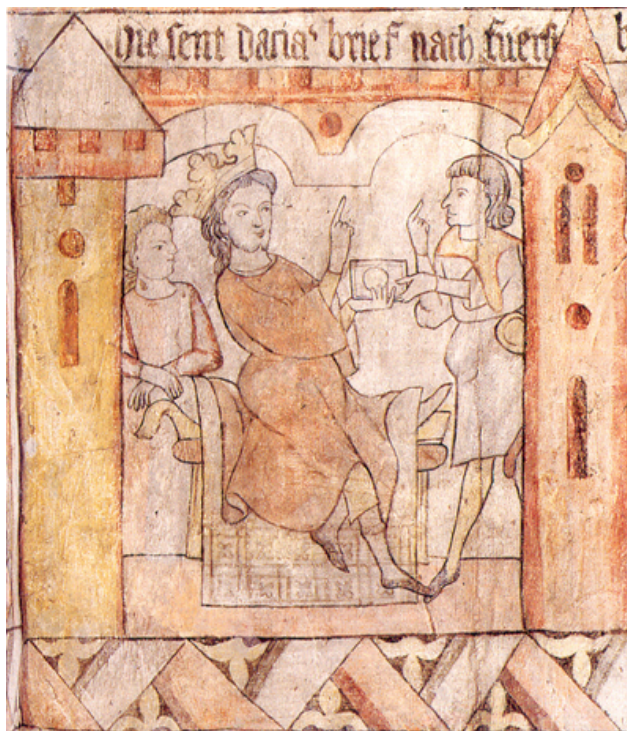 Hie sent daria' brief nach fuerst b